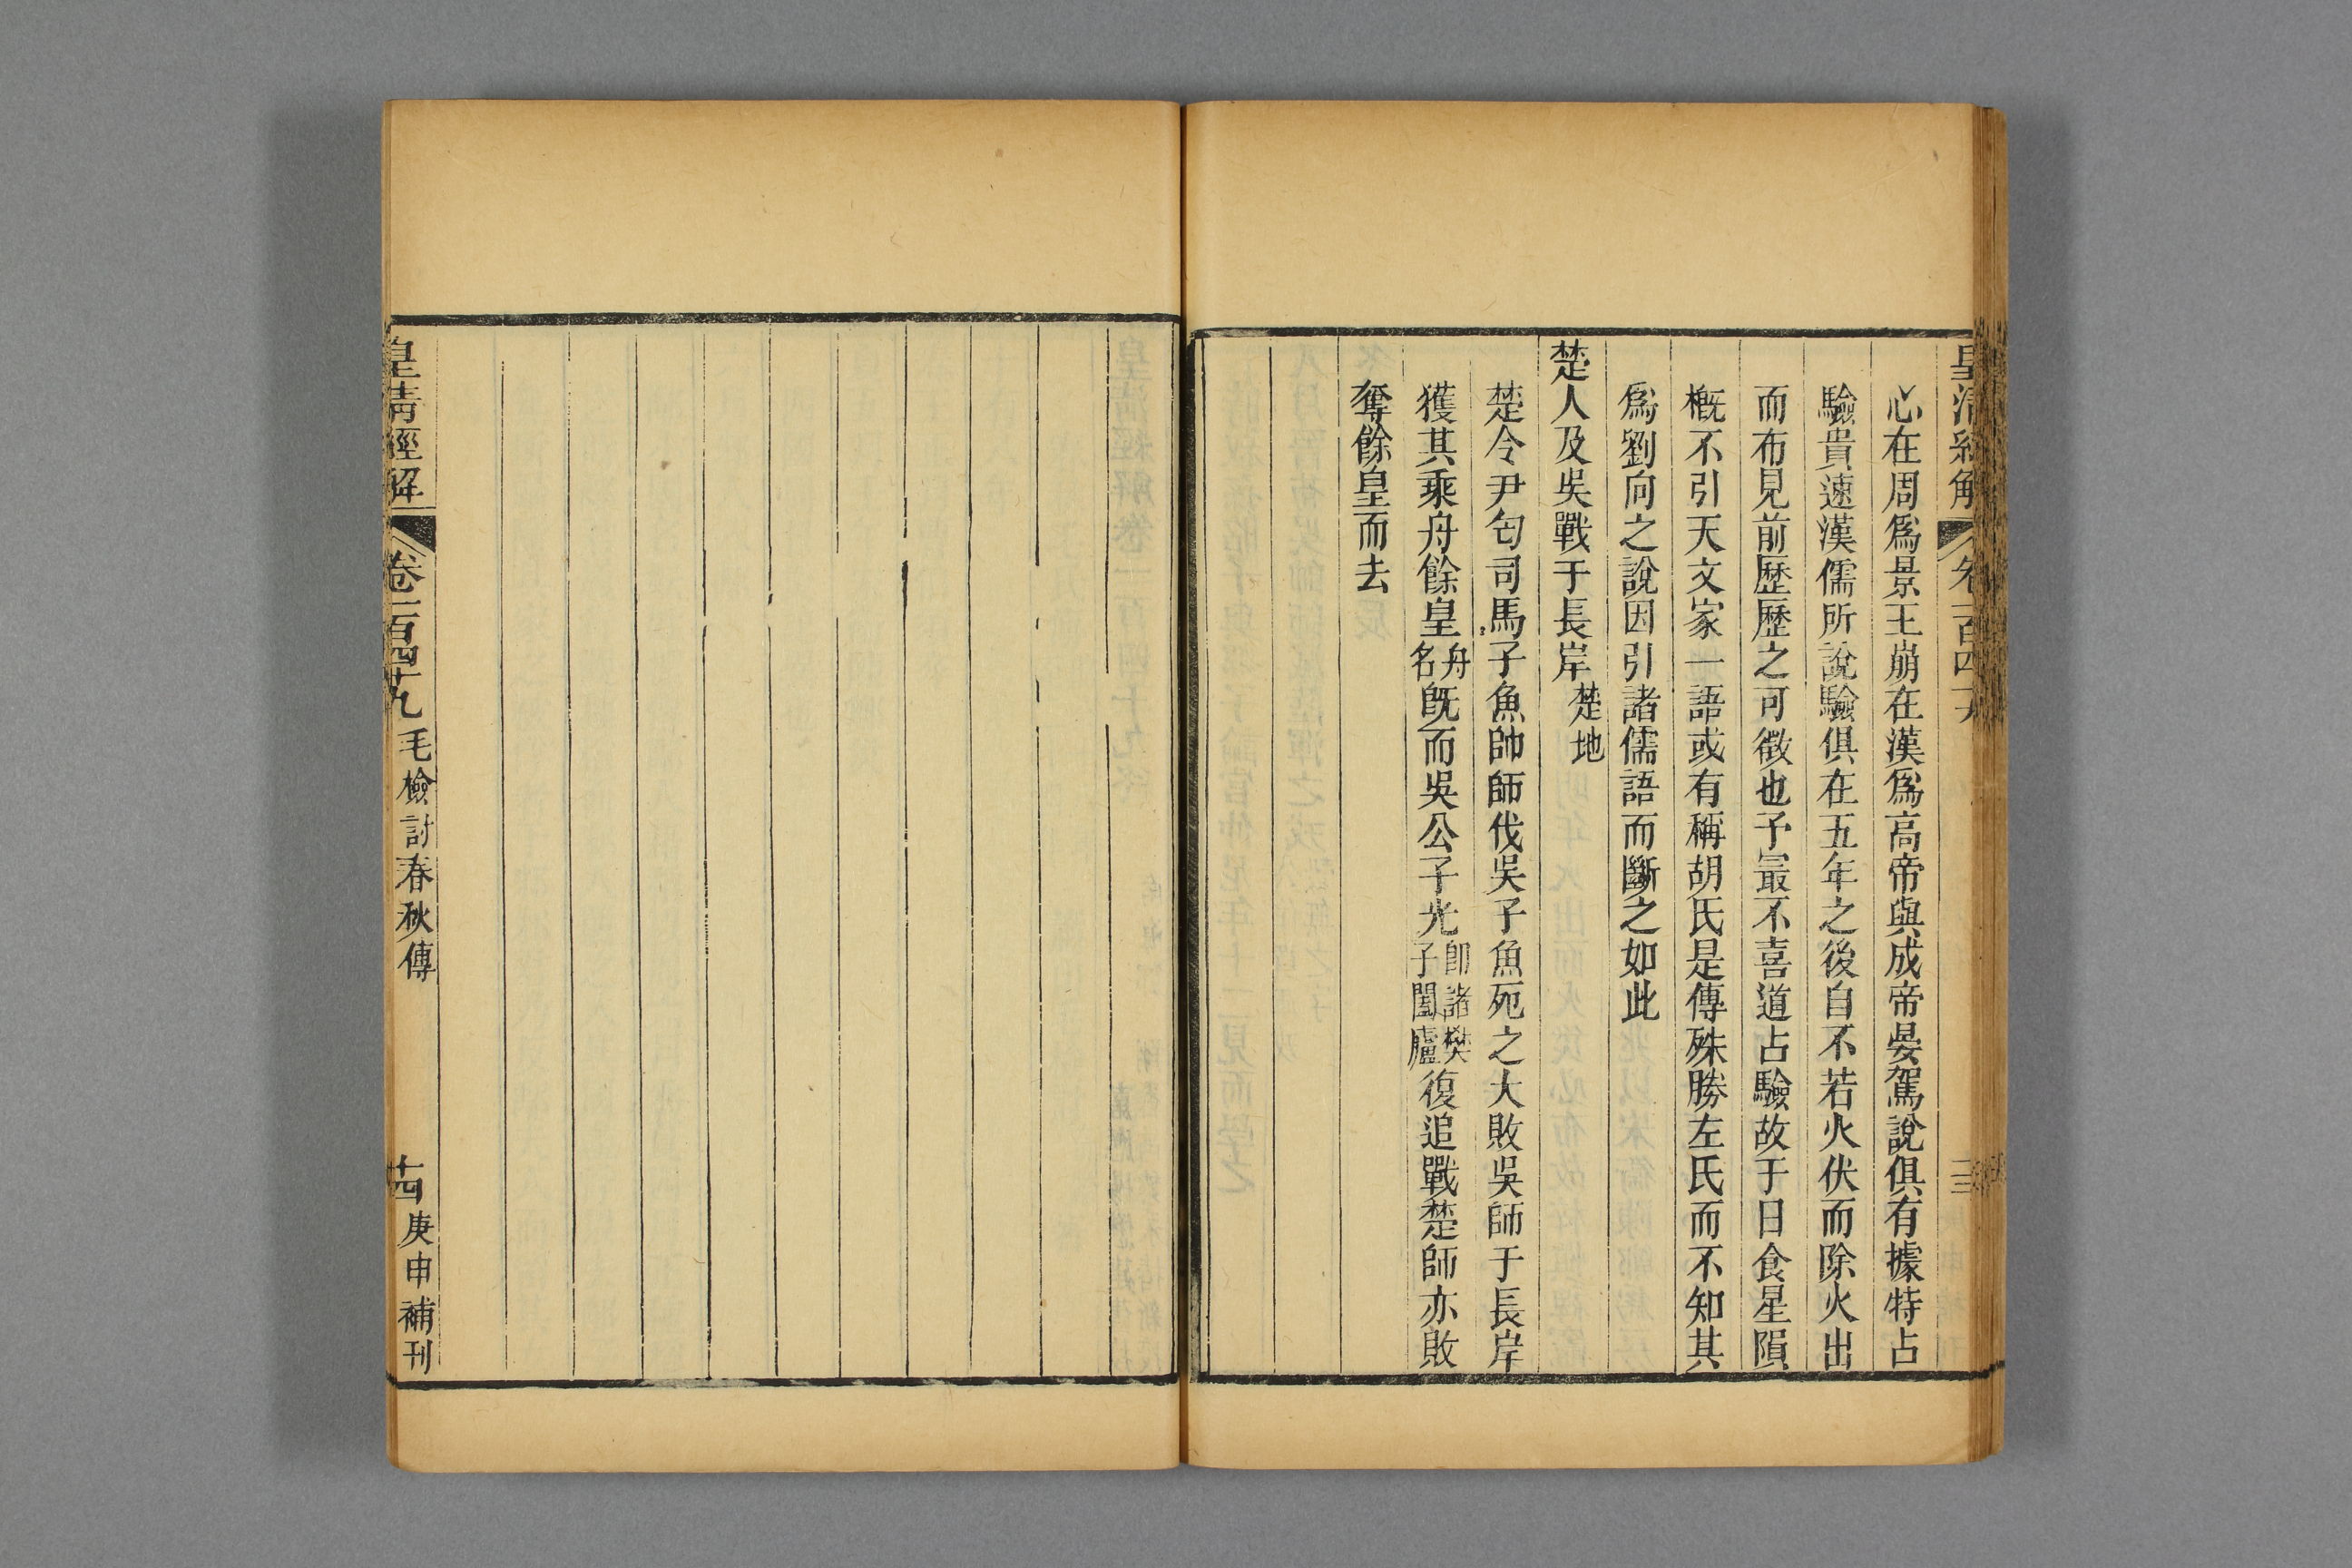 心在周爲景王崩在漢爲高帝與成帝晏駕說俱有據特占
驗貴速漢儒所說驗俱在五年之後自不若火伏而除火出
而布見前歷歷之可徵也予最不喜道占驗故于日食星隕
概不引天文家一語或有稱胡氏是傳殊勝左氏而不知其
爲劉向之說因引諸儒語而斷之如此
楚人及吳戰于長岸楚地
楚令尹匄司馬子魚帥師伐吳子魚死之大敗吳師于長岸
獲其乘舟餘皇舟名旣而吳公子光卽諸樊子闔廬復追戰楚師亦敗
奪餘皇而去
皇清經解 卷一百四十九 毛檢討春秋傳 十四 庚申補刊